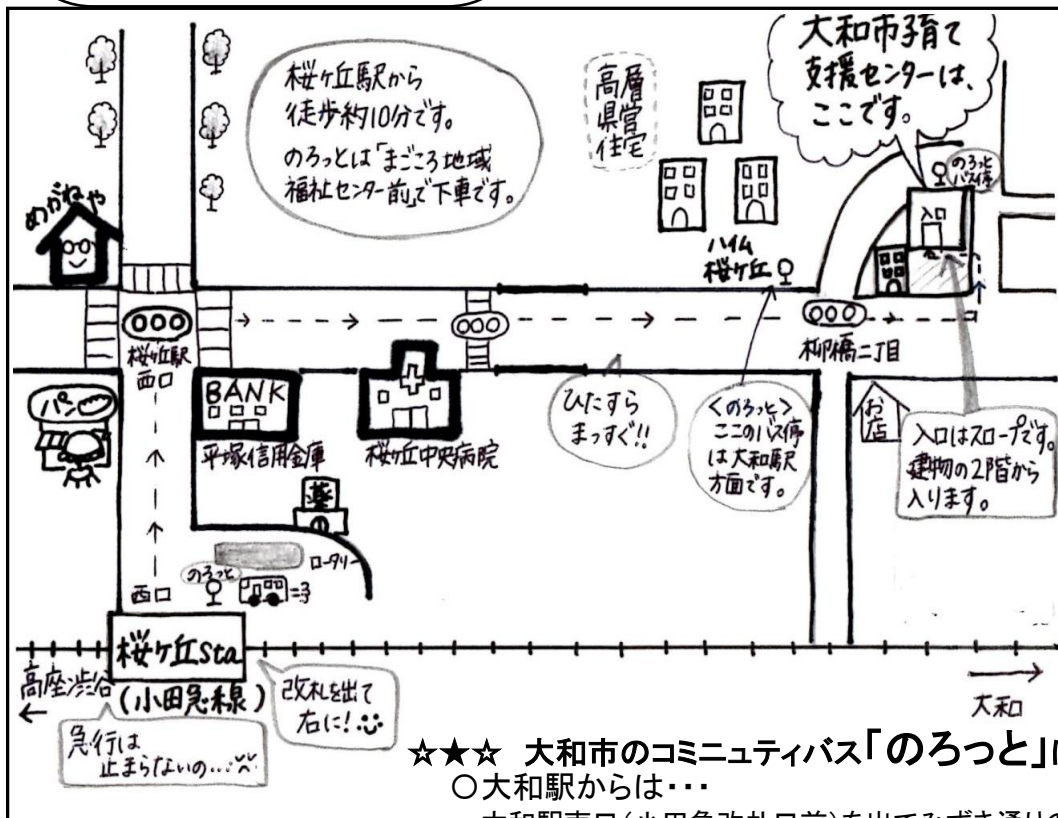 桜ヶ丘駅から
徒歩約10分です。
のろっとは「まごころ地域
福祉センター前」で下車です。
高層
県営
住宅
大和市子育て
支援センターは、
ここです。
のろっと
バス停
入口
めがねや
ハイム
桜ヶ丘
桜ヶ丘駅
西口
柳橋二丁目
パン
BANK
平塚信用金庫
桜ヶ丘中央病院
ひたすら
まっすぐ!!
<のろっと>
ここのバス停
は大和駅
方面です。
お店
入口はスロープです。
建物の2階から
入ります。
薬
ロータリー
のろっと
西口
桜ヶ丘Sta
(小田急線)
高座渋谷
←
改札を出て
右に!
急行は
止まらないの…
→
大和
☆★☆ 大和市のコミニュティバス「のろっと」
○大和駅からは・・・